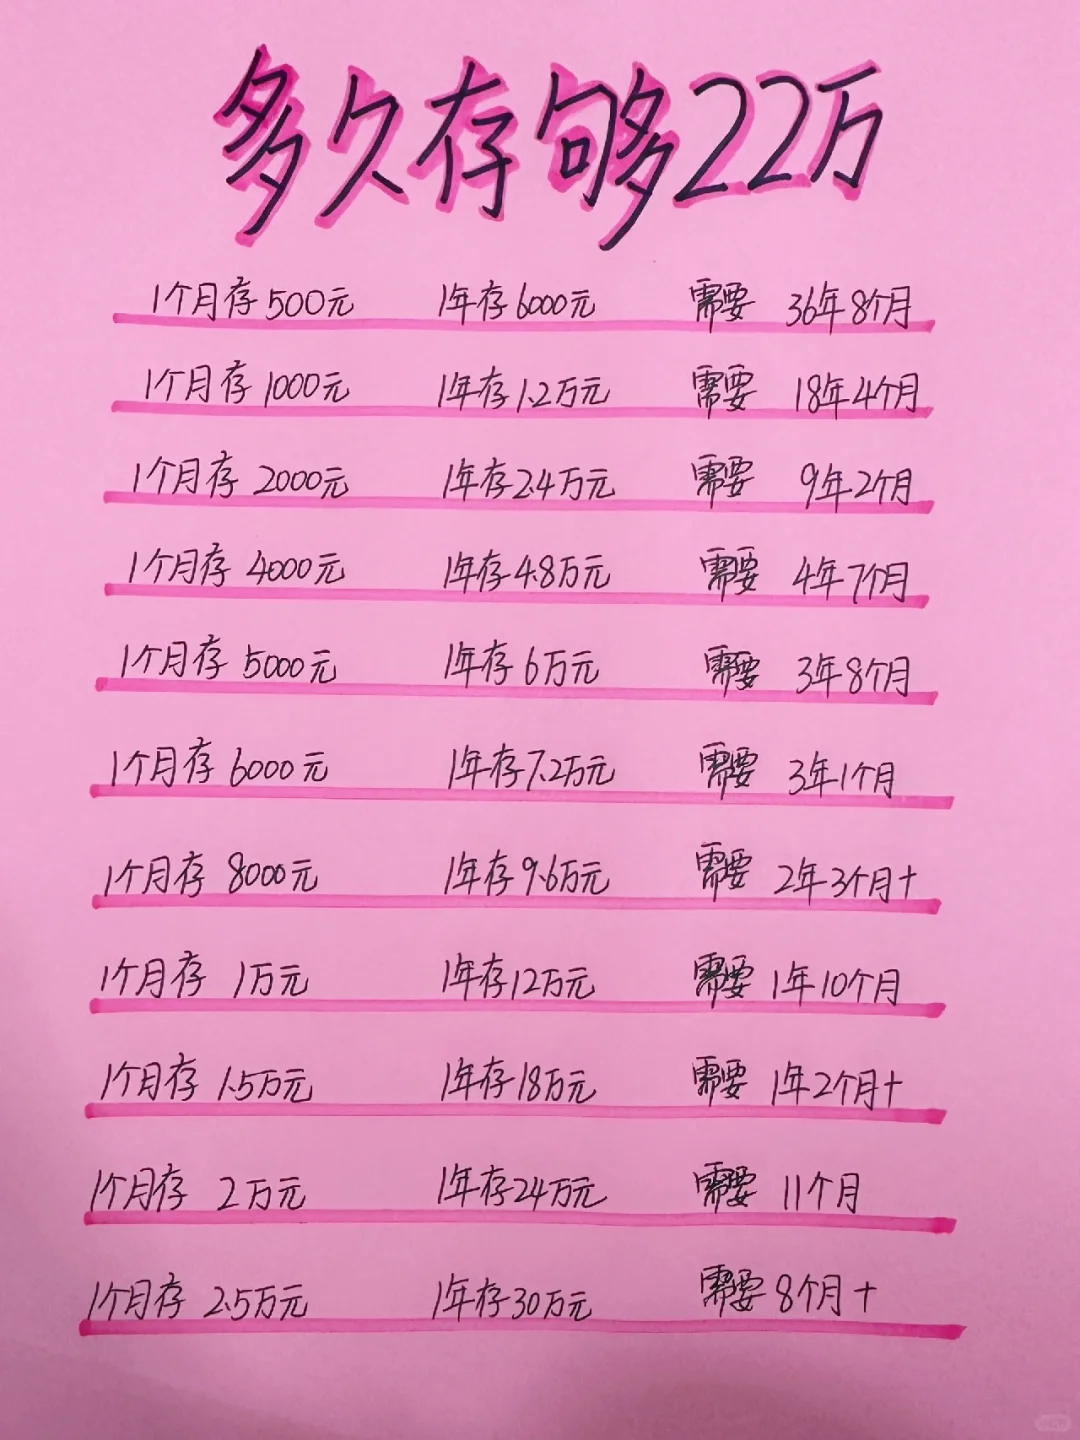 多久存够22万
1个月存 500元 1年存 6000元 需要 36年8个月
1个月存 1000元 1年存 1.2万元 需要 18年4个月
1个月存 2000元 1年存 2.4万元 需要 9年2个月
1个月存 4000元 1年存 4.8万元 需要 4年7个月
1个月存 5000元 1年存 6万元 需要 3年8个月
1个月存 6000元 1年存 7.2万元 需要 3年1个月
1个月存 8000元 1年存 9.6万元 需要 2年3个月+
1个月存 1万元 1年存 12万元 需要 1年10个月
1个月存 1.5万元 1年存 18万元 需要 1年2个月+
1个月存 2万元 1年存 24万元 需要 11个月
1个月存 2.5万元 1年存 30万元 需要 8个月+